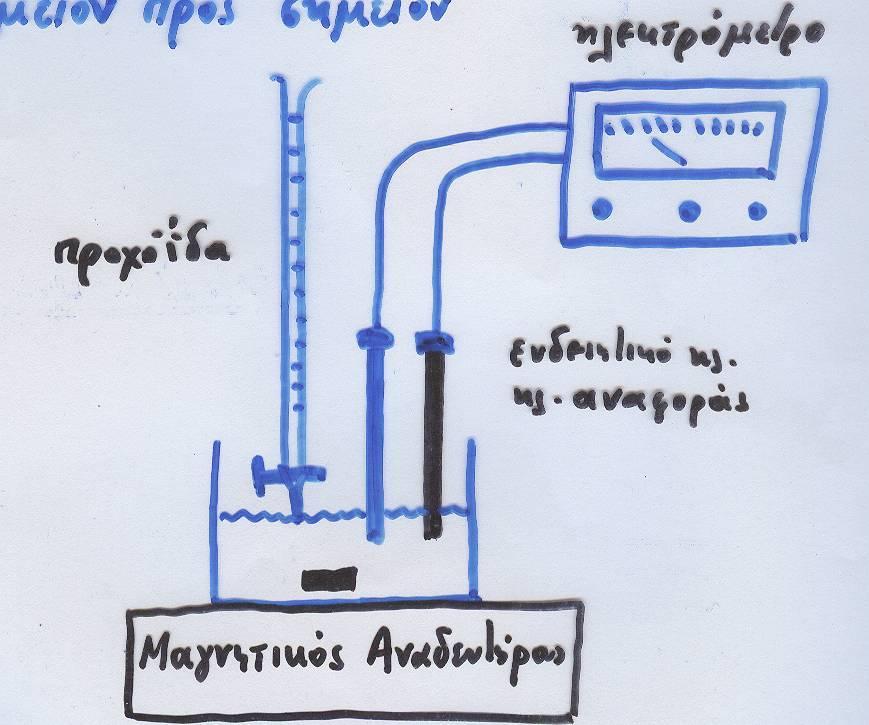 μείον προς σημείον
ηλεκτρόμετρο
προχοΐδα
ενδεικτικό ηλ.
ηλ. αναφοράς
Μαγνητικός Αναδευτήρας